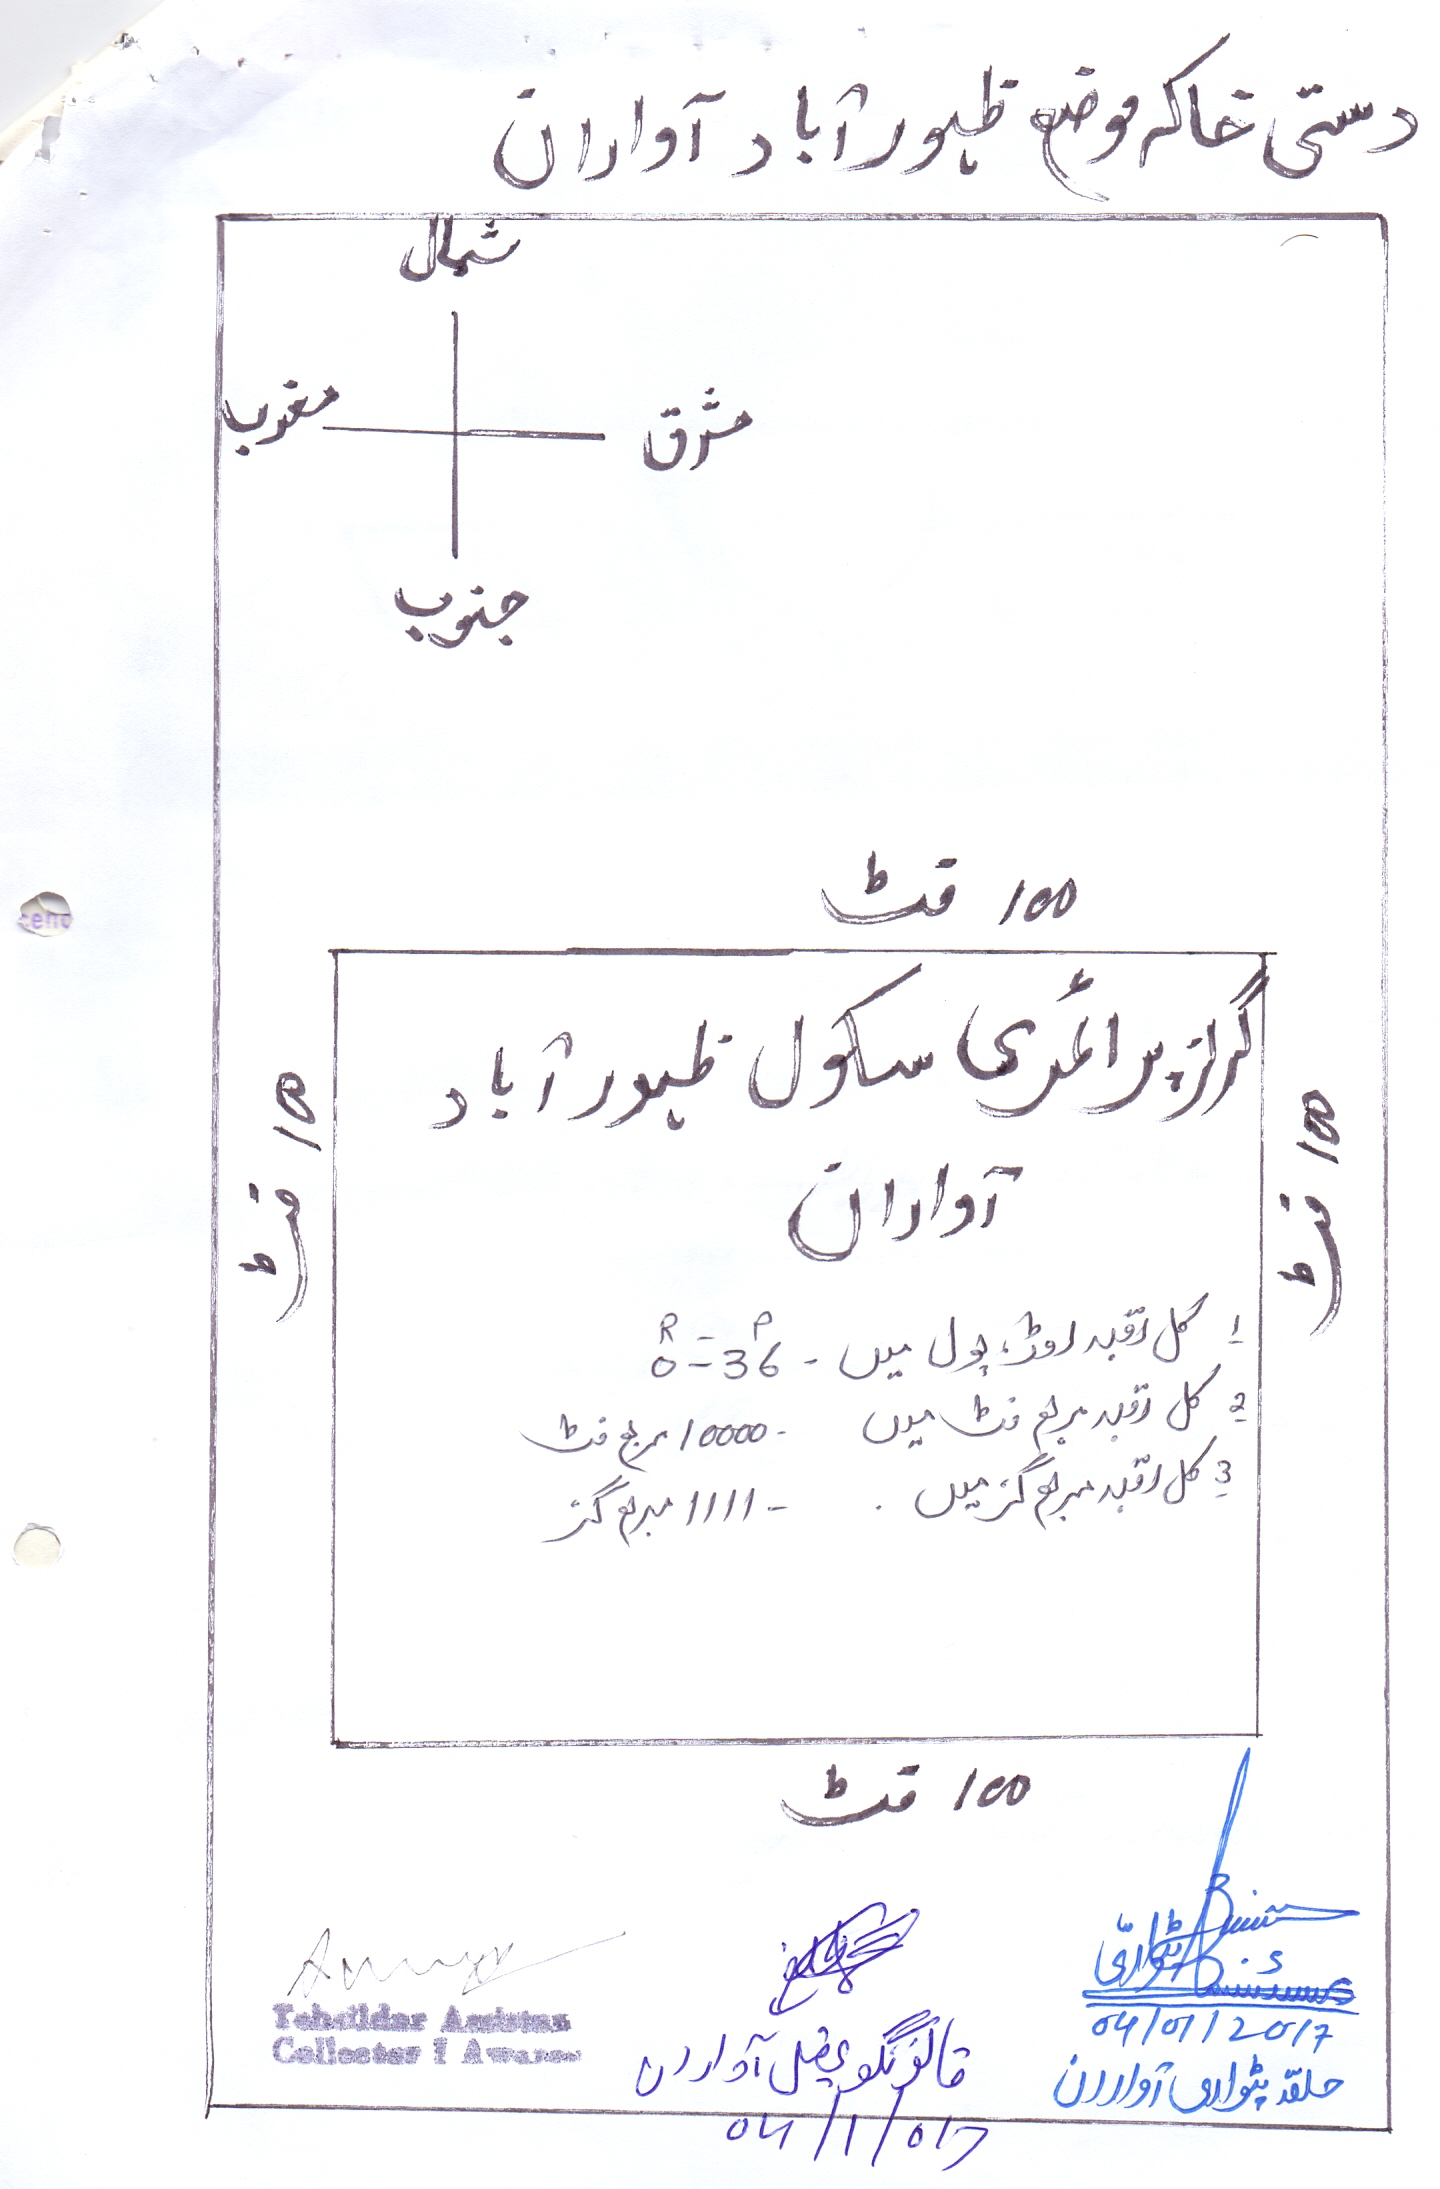 دستی خاکہ موضع ظہور آباد آواران
شمال
مغرب
مشرق
جنوب
100 فٹ
گرلز پرائمری سکول ظہور آباد
آواران
100 فٹ
100 فٹ
1 کل رقبہ روڈ، پول میں - R P 0=36
2 کل رقبہ مربع فٹ میں - 10000 مربع فٹ
3 کل رقبہ مربع گز میں - 1111 مربع گز
100 فٹ
Tehsildar Assistan
Collector I Awaran
قانونگو تحصیل آواران
04/1/017
پٹواری
04/01/2017
حلقہ پٹواری آواران